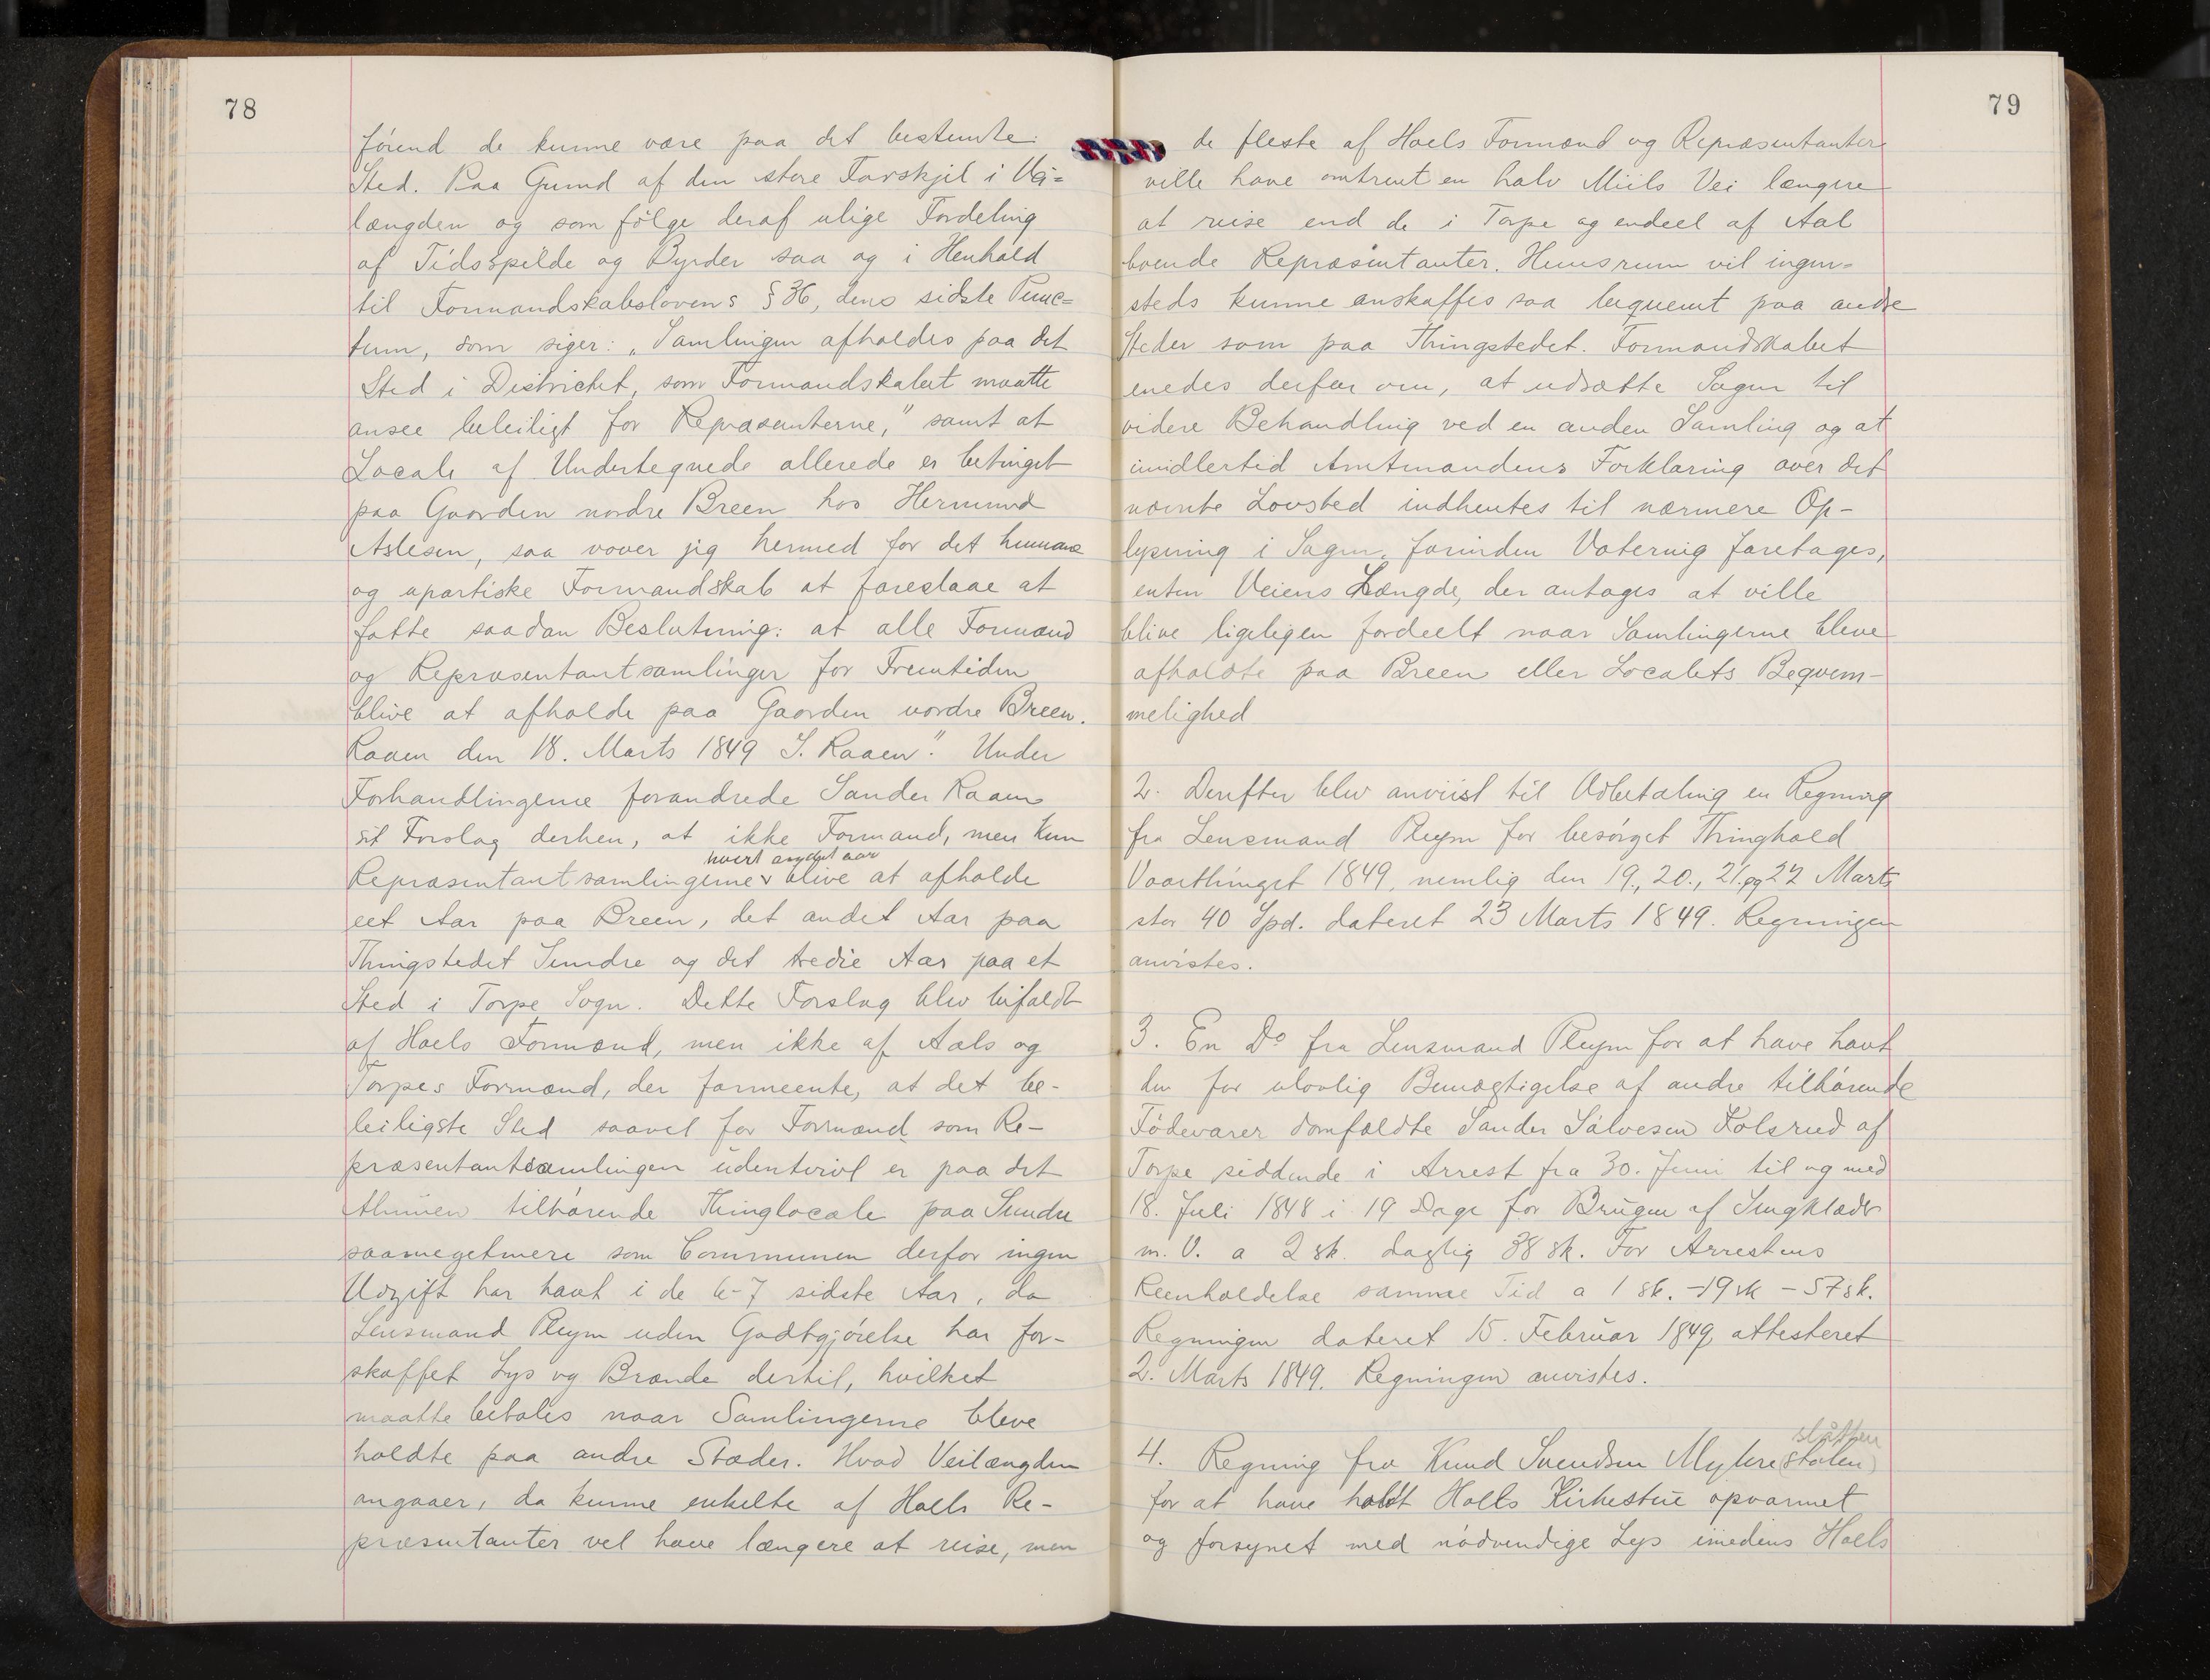 78
førend de kunne være paa det bestemte
Sted. Paa Grund af den store Forskjel i Vei=
længden og som følge deraf ulige Fordeling
af Tidsspilde og Byrder saa og i Henhold
til Formandskabslovens § 36, dens sidste Punc=
tum, som siger: „Samlingen afholdes paa det
Sted i Districtet, som Formandskabet maatte
ansee beleiligt for Repræsenterne," samt at
Locale af Undertegnede allerede er betinget
paa Gaarden nordre Breen hos Hermund
Aslesen, saa vover jeg hermed for det humane
og upartiske Formandskab at foreslaae at
fatte saadan Beslutning: at alle Formænd
og Repræsentantsamlinger for Fremtiden
blive at afholde paa Gaarden nordre Breen.
Raaen den 18. Marts 1849 S. Raaen." Under
Forhandlingerne forandrede Sander Raaen
sit Forslag derhen, at ikke Formænd, men kun
hvert andet aar
Repræsentantsamlingerne v blive at afholde
eet Aar paa Breen, det andet Aar paa
Thingstedet Sundre og det tredie Aar paa et
Sted i Torpe Sogn. Dette Forslag blev bifaldt
af Hoels Formænd, men ikke af Aals og
Torpes Formænd, der formeente, at det be-
leiligste Sted saavel for Formænd som Re-
præsentantsamlingen udentvivl er paa det
Almuen tilhørende Thinglocale paa Sundre
saamegetmere som Communen derfor ingen
Udgift har havt i de 6-7 sidste Aar, da
Lensmand Pleym uden Godtgjørelse har for-
skaffet Lys og Brænde dertil, hvilket
maatte betales naar Samlingerne bleve
holdte paa andre Stæder. Hvad Veilængden
angaaer, da kunne enkelte af Hoels Re-
præsentanter vel have længere at reise, men
79
de fleste af Hoels Formænd og Repræsentanter
ville have omtrent en halv Miils Vei længere
at reise end de i Torpe og endeel af Aal
boende Repræsentanter. Huusrum vil ingen=
steds kunne anskaffes saa bequemt paa andre
Steder som paa Thingstedet. Formandskabet
enedes derfor om, at udsætte Sagen til
videre Behandling ved en anden Samling og at
imidlertid Amtmandens Forklaring over det
nævnte Lovsted indhentes til nærmere Op-
lysning i Sagen, forinden Votering foretages,
enten Veiens Længde, der antages at ville
blive ligeligen fordeelt naar Samlingerne bleve
afholdte paa Breen eller Localets Beqvem-
melighed
2. Derefter blev anviist til Udbetaling en Regning
fra Lensmand Pleym for besørget Thinghold
Vaarthinget 1849, nemlig den 19., 20., 21. og 22 Marts
stor 40 Spd. dateret 23 Marts 1849. Regningen
anvistes.
3. En Do fra Lensmand Pleym for at have havt
den for ulovlig Bemægtigelse af andre tilhørende
Fødevarer domfældte Sander Sálvesen Kolsrud af
Torpe siddende i Arrest fra 30. Juni til og med
18. Juli 1848 i 19 Dage for Brugen af Sengklæder
m. V. a 2 sk. daglig 38 sk. For Arrestens
Reenholdelse samme Tid a 1 sk. -19 sk - 57 sk.
Regningen dateret 15. Februar 1849, attesteret
2. Marts 1849. Regningen anvistes.
slåtten
4. Regning fra Knud Svendsen Mykre (stølen)
for at have holdt Hoels Kirkestue opvarmet
og forsynet med nødvendige Lys imedens Hoels